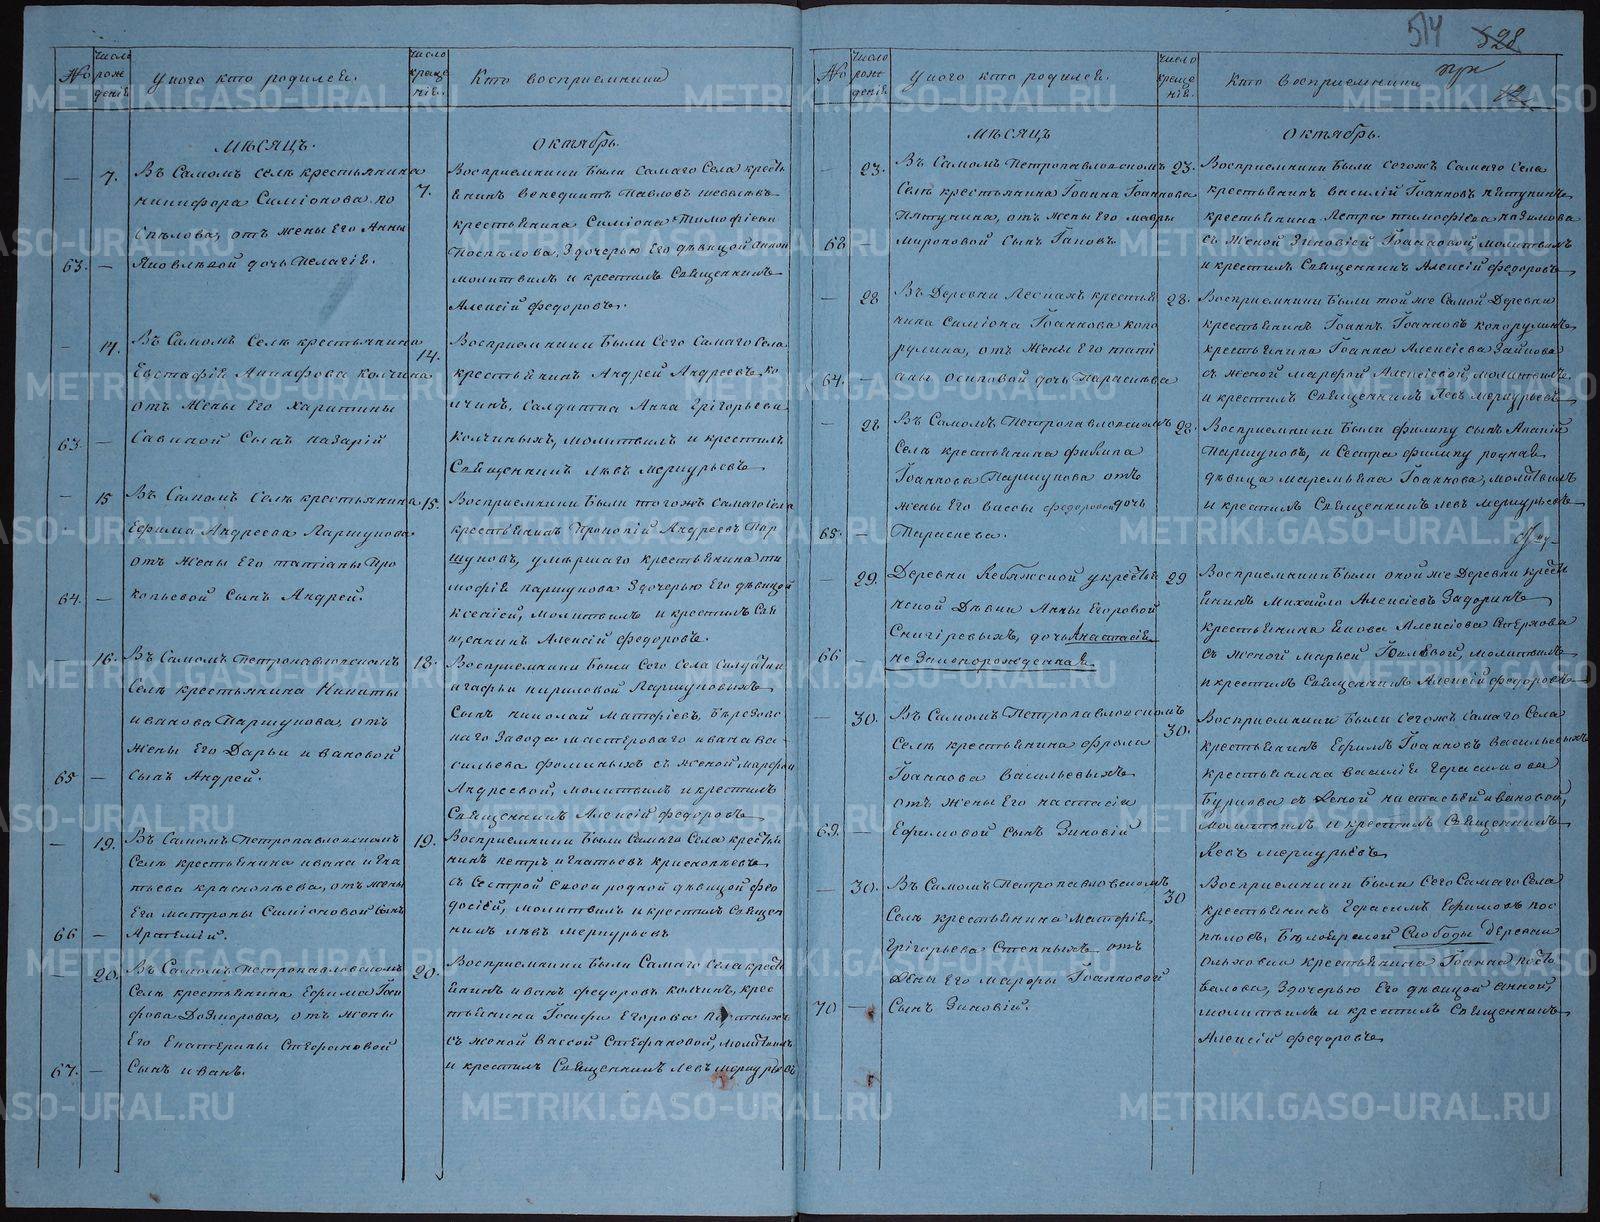 514 528
№
Число рождения.
У кого кто родился.
Число крещения.
Кто восприемники
Мѣсяцъ.
Октябрь.
— 7. Въ Самомъ селѣ крестьянина
никифора Симіонова по
спѣлова, отъ жены Его Анны
63. — Яковлевой дочь пелагіе.
7. Восприемники были самаго Села кресть
янинъ Венедиктъ Павловъ
крестьянина Симіона Тимофіева
поспѣлова, Здочерью Его дѣвицой Анной
молитвилъ и крестилъ Священникъ
Алексій федоровъ.
— 14. Въ Самомъ Селѣ крестьянина
Евстафіе колчина
отъ жены Его харитины
63. — Савиной Сынъ назарій
14. Восприемники Были Сего Самаго Села
крестьянинъ Андрей Андреевъ ко
лчинъ, Салдатка Анна Грігорьева
колчиныхъ, молитвилъ и крестилъ
Священникъ лѣвъ меркурьевъ
— 15 Въ Самомъ Селѣ крестьянина
Ефима Андреева Паршукова
отъ жены Его татіаны Про
64. — копьевой Сынъ Андрей.
15. Восприемники Были тогожъ Самаго Села
крестьянинъ Прокопій Андреевъ Пар
шуковъ, умѣршаго крестьянина ти
мофіе паршукова Здочерью Его дѣвицой
ксеніей, молитвилъ и крестилъ Свя
щенникъ Алексій федоровъ.
— 16. Въ Самомъ Петропавловскомъ
Селѣ крестьянина Никиты
иванова Паршукова, отъ
жены Его Дарьи ивановой
65 — Сынъ Андрей.
18. Восприемники Были Сего Села Салдатки
агафьи кириловой Паршуковыхъ
Сынъ николай Матфіевъ, Бѣрезовс
каго Завода мастероваго ивана ва
сильева фоминыхъ съ женой марфой
Андреевой, молитвилъ и крестилъ
Священникъ Алексій федоровъ
— 19. Въ Самомъ Петропавловскомъ
Селѣ крестьянина ивана игна
тьева красноперова, отъ жены
Его матроны Симіоновой Сынъ
66 — Артемій.
19. Восприемники Были Самаго Села кресть
нинъ петръ игнатьевъ
съ Сестрой Своей родной дѣвицой фео
досіей, молитвилъ и крестилъ Священ
никъ лѣвъ меркурьевъ
— 20. Въ Самомъ Петропавловскомъ
Селѣ крестьянина Ефима
отъ жены
Его Екатерины Стефановой
67. — Сынъ иванъ.
20. Восприемники Были Самаго Села кресть
янинъ иванъ федоровъ колчинъ, крес
тьянина Іосифа Егорова
съ женой Вассой Стефановой, молитвилъ
и крестилъ Священникъ левъ меркурьевъ
№
Число рождения.
У кого кто родился.
Число крещения.
Кто восприемники
Мѣсяцъ
Октябрь.
— 23. Въ Самомъ Петропавловскомъ
Селѣ крестьянина Іоанна Іоаннова
Пятунина, отъ жены Его мавры
68 — мироновой Сынъ Іаковъ
23. Восприемники Были Сегожъ Самаго Села
крестьянинъ василій Іоанновъ пятунинъ
крестьянина Петра тимофіева
съ женой Зиновіей Іоанновой, молитвилъ
и крестилъ Священникъ Алексій федоровъ
— 28 Въ Деревни Лескахъ крестья
нина Симіона Іоаннова копо
рулина, отъ жены Его тати
64. — аны осиповой дочь Параскева
28. Восприемники Были той же Самой Деревни
крестьянинъ Іоаннъ Іоанновъ копорулинъ
крестьянина Іоанна Алексіева Зайкова
съ женой марфой Алексіевой, молитвилъ
и крестилъ Священникъ Левъ меркурьевъ
— 28 Въ Самомъ Петропавловскомъ
Села крестьянина филипа
Іоаннова Паршукова отъ
жены Его вассы федоровой дочь
65. — Параскева.
28. Восприемники Были филипу сынъ Ананій
Паршуковъ, и Сестра филипу родная
дѣвица маремьяна Іоаннова, молитвилъ
и крестилъ Священникъ левъ меркурьевъ
— 29. Деревни Лебяжской у кресть
нской Дѣвки Анны Егоровой
Снигіревыхъ, дочь Анастасіе
66 — не Законорожденная.
29 Восприемники Были оной же Деревни кресть
янинъ михайло Алексіевъ Задоринъ
крестьянина Якова Алексіева
съ женой марьей молитвилъ
и крестилъ Священникъ Алексій федоровъ
— 30. Въ Самомъ Петропавловскомъ
Селѣ крестьянина фрола
Іоаннова Васильевыхъ
отъ жены Его настасіи
69. — Ефимовой сынъ Зиновій
30. Восприемники Были Сегожъ Самаго Села
крестьянинъ Ефимъ Іоанновъ Васильевыхъ
крестьянина василіе Герасимова
Буркова съ женой настасьей ивановой,
молитвилъ и крестилъ Священникъ
Левъ меркурьевъ
— 30. Въ Самомъ Петропавловскомъ
Селѣ крестьянина Матфіе
Грігорьева Степныхъ отъ
жены Его марфы Іоанновой
70 — Сынъ Зиновій.
30 Восприемники Были Сего Самаго Села
крестьянинъ Герасимъ Ефимовъ пос
пѣловъ, Бѣлоярской Слободы Деревни
ольховки крестьянина Іоанна
Здочерью Его дѣвицой Анной,
молитвилъ и крестилъ Священникъ
Алексій федоровъ
METRIKI.GASO-URAL.RU